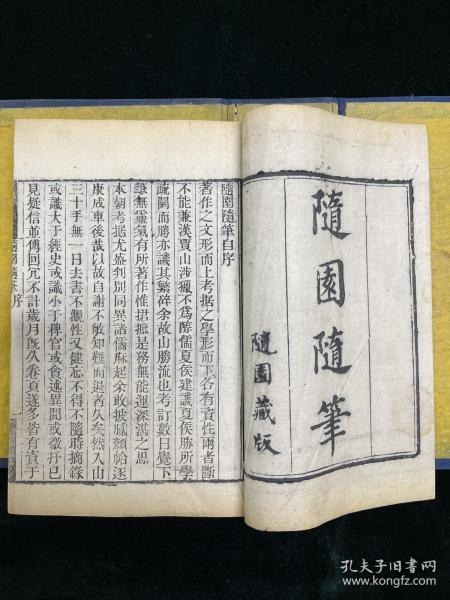 隨園隨筆
隨園藏版
隨園隨筆自序
著作之文形而上考据之學形而下各有資性兩者斷
不能兼漢賈山涉獵不為醇儒夏侯建譏夏侯勝所學
疏闊而勝亦譏其繁碎余故山勝流也考訂數日覺下
筆無靈氣有所著作惟捃摭是務無能運深湛之思
本朝考据尤盛判別同異諸儒麻起余敢披膩顏帢逐
康成車後哉以故自謝不敏知難而退者久矣然入山
三十年無一日去書不觀性又健忘不得不隨時摘錄
或識大于經史或識小于稗官或貪述異聞或徵抒己
見疑信並傳回冗不計歲月既久卷頁遂多皆有資于
序
一
孔夫子旧书网
www.kongfz.com